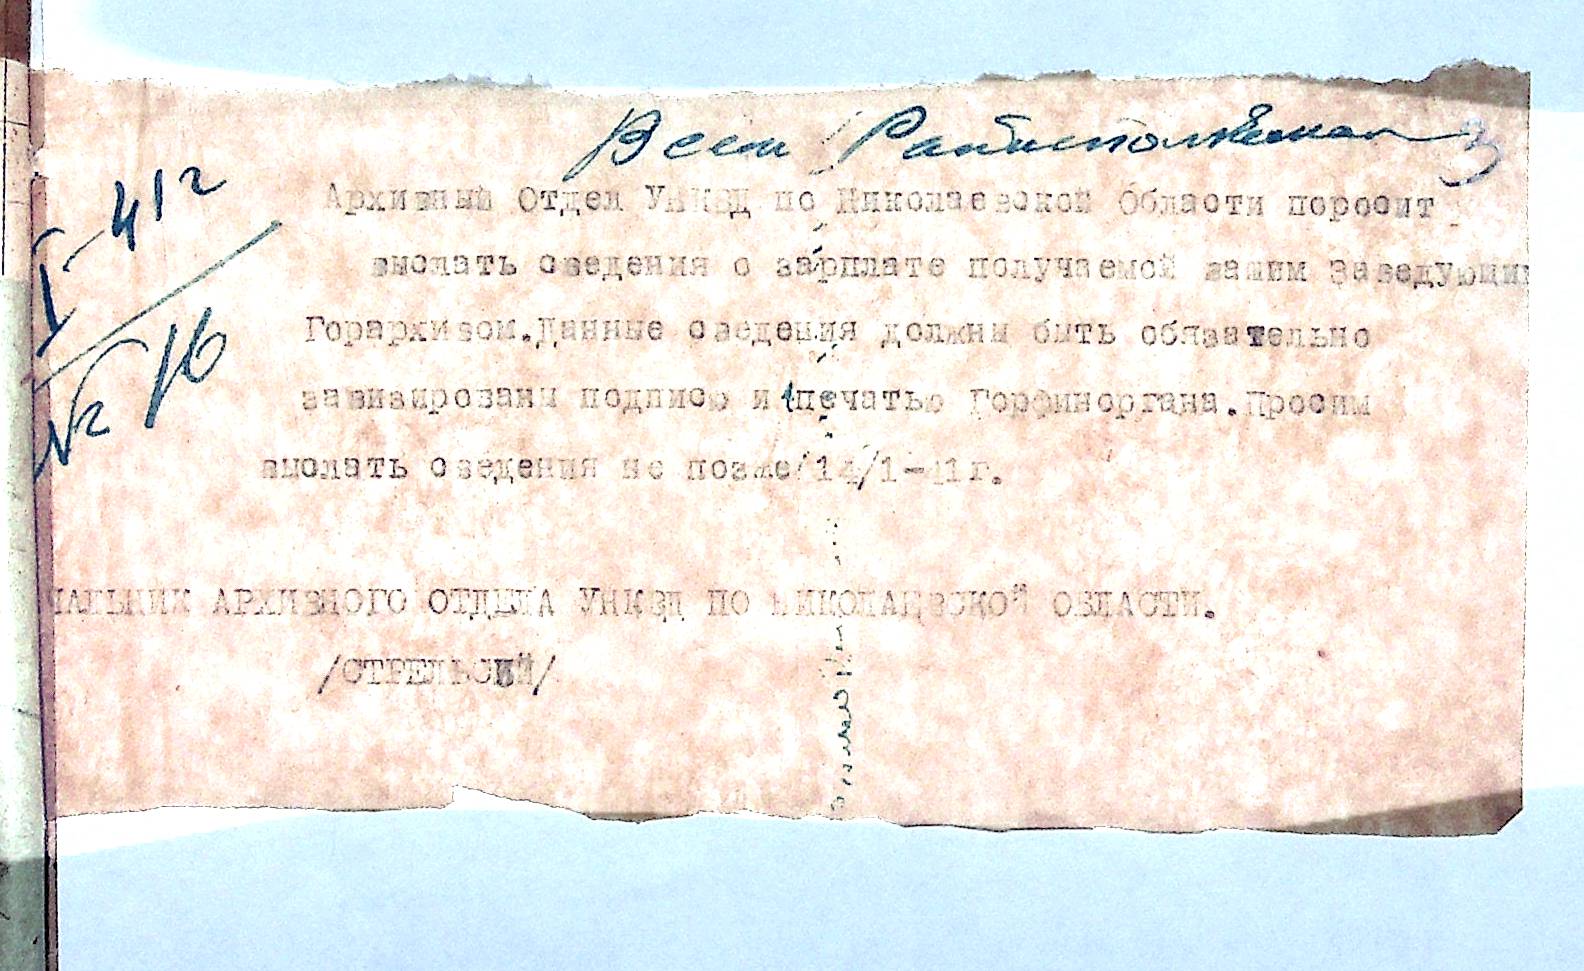 Всем Райисполкомам
3
I-41 г
№ 16
Архивный Отдел УНКВД по Николаевской Области поросит
выслать сведения о зарплате получаемой вашим Заведующим
Горархивом.Данные сведения должны быть обязательно
завизированы подписю и печатью Горфиноргана.Просим
выслать сведения не позже 14/1-41г.
ЧАЛЬНИК АРХИВНОГО ОТДЕЛА УНКВД ПО НИКОЛАЕВСКОЙ ОБЛАСТИ.
/СТРЕЛЬСКИЙ/